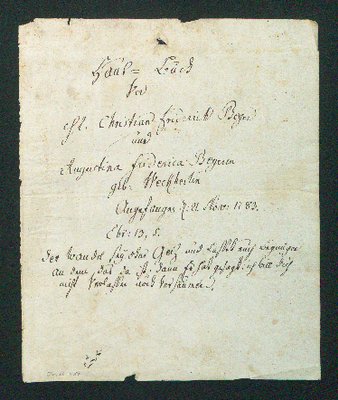 Haus=Buch
Von
M. Christian Friderich Beyer
und
Augustina Friderica Beyerin
geb. Weckherlin
Angefangen d. 21 Nov: 1783.
Ebr: 13, 5.
Der Wandel sey ohne Geiz und lasset euch begnügen
an dem, das da ist: dann Er hat gesagt: ich will dich
nicht verlassen noch versäumen.